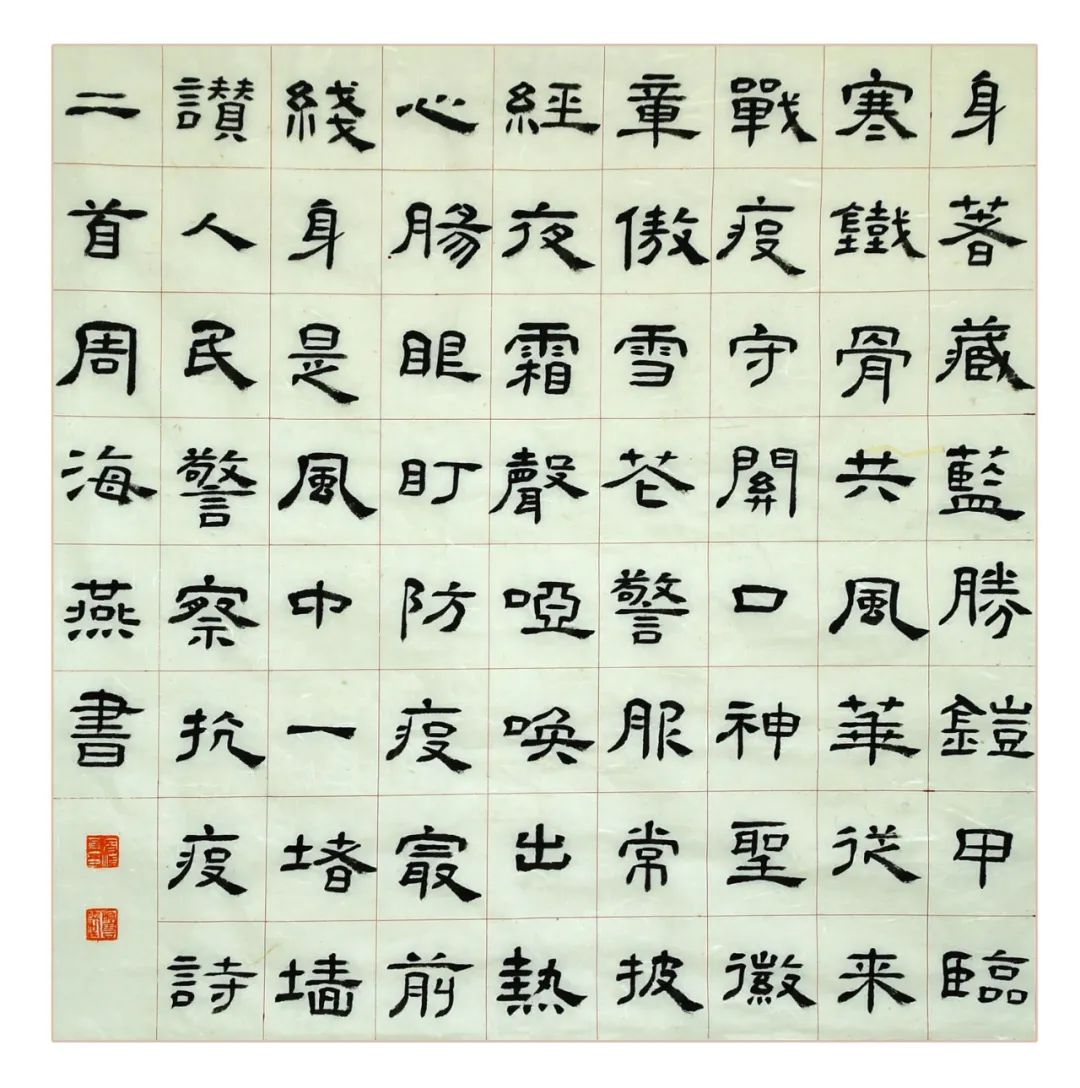 身著藏藍勝鎧甲臨
寒鐵骨共風華從来
戰疫守關口神聖徽
章傲雪花警服常披
經夜霜聲啞喚出熱
心腸眼盯防疫最前
綫身是風中一堵墙
讃人民警察抗疫詩
二首周海燕書